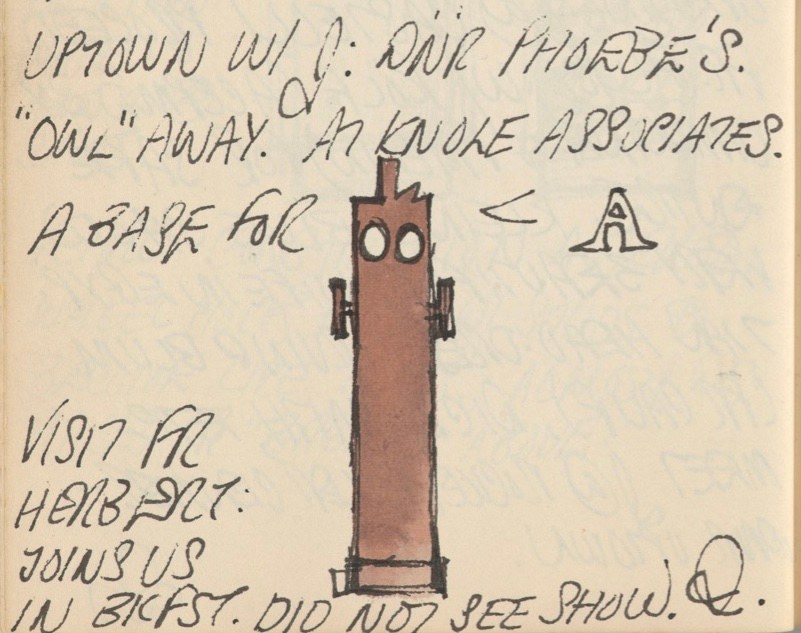 UPTOWN W/ J: DNR PHOEBE'S.
"OWL" AWAY. AT KNOLE ASSOCIATES.
A BASE FOR < A
VISIT FR
HERBERT:
JOINS US
IN BKFST. DID NOT SEE SHOW.